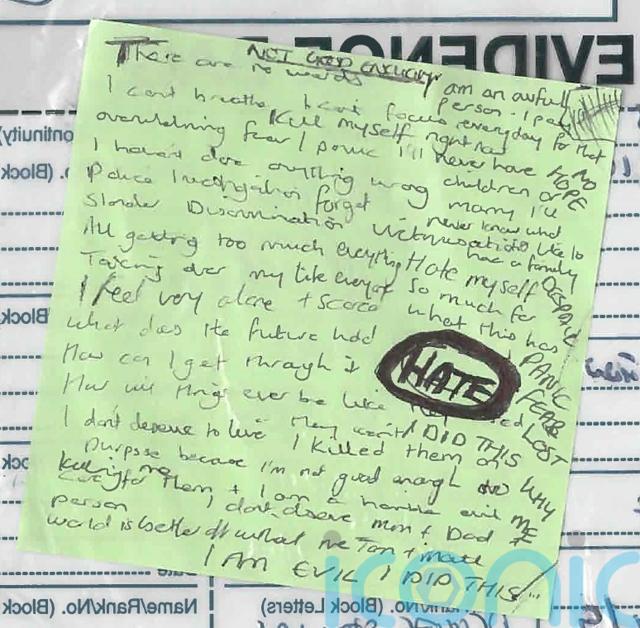 EVIDENCE
NOT GOOD ENOUGH
There are no words I am an awful
person. I pay
I can't breathe I can't focus everyday for that
Kill myself right now
overwhelming fear / panic I'll never have NO
HOPE
children or
I haven't done anything wrong marry I'll
never know what
Police investigation forget its like to
have a family
Slander Discrimination Victimisation
DESPAIR
All getting too much everything Hate myself
Taking over my life everyday so much for
what this has
I feel very alone + scared
What does the future hold
PANIC
How can I get through it
HATE
FEAR
How will things ever be like
LOST
I don't deserve to live They won't I DID THIS
I killed them on
purpose because I'm not good enough WHY
ME
to care for them + I am a horrible evil
killing me
person I don't deserve mum + Dad
world is better off without me
I AM EVIL I DID THIS
(Block
Name/Rank/No. (Block
(Block Letters)
iconic